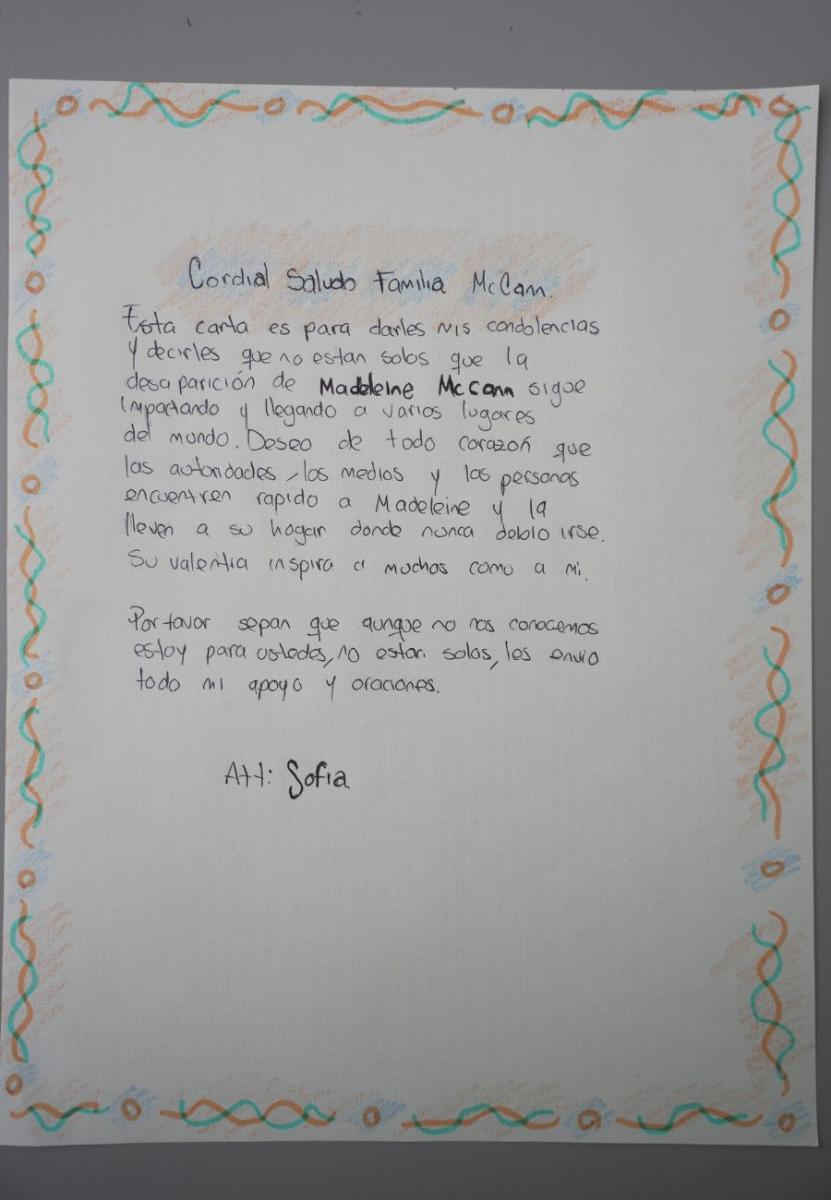 Cordial Saludo Familia McCann.
Esta carta es para darles mis condolencias
y decirles que no estan solos que la
desaparición de Madeleine McCann sigue
impactando y llegando a varios lugares
del mundo. Deseo de todo corazón que
las autoridades, los medios y las personas
encuentren rapido a Madeleine y la
lleven a su hogar donde nunca debio irse.
Su valentia inspira a muchos como a mi.
Por favor sepan que aunque no nos conocemos
estoy para ustedes, no estan solos, les envio
todo mi apoyo y oraciones.
Att: Sofia